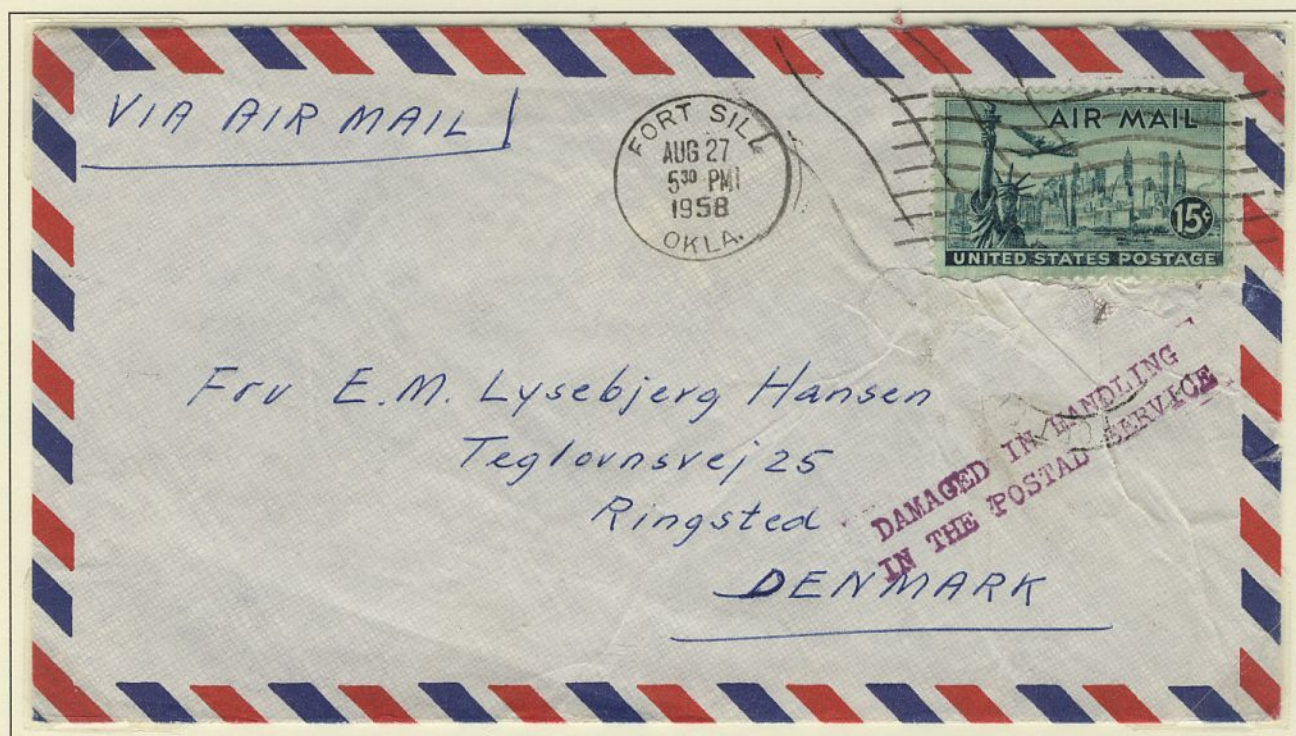 VIA AIR MAIL
FORT SILL
AUG 27
5³⁰ PM
1958
OKLA.
AIR MAIL
15¢
UNITED STATES POSTAGE
Frv E.M. Lysebjerg Hansen
Teglovnsvej 25
Ringsted
DENMARK
DAMAGED IN HANDLING
IN THE POSTAL SERVICE